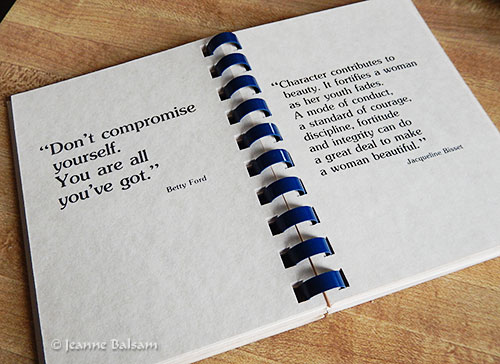 “Don’t compromise
yourself.
You are all
you’ve got.”
Betty Ford
“Character contributes to
beauty. It fortifies a woman
as her youth fades.
A mode of conduct,
a standard of courage,
discipline, fortitude
and integrity can do
a great deal to make
a woman beautiful.”
Jacqueline Bisset
© Jeanne Balsam